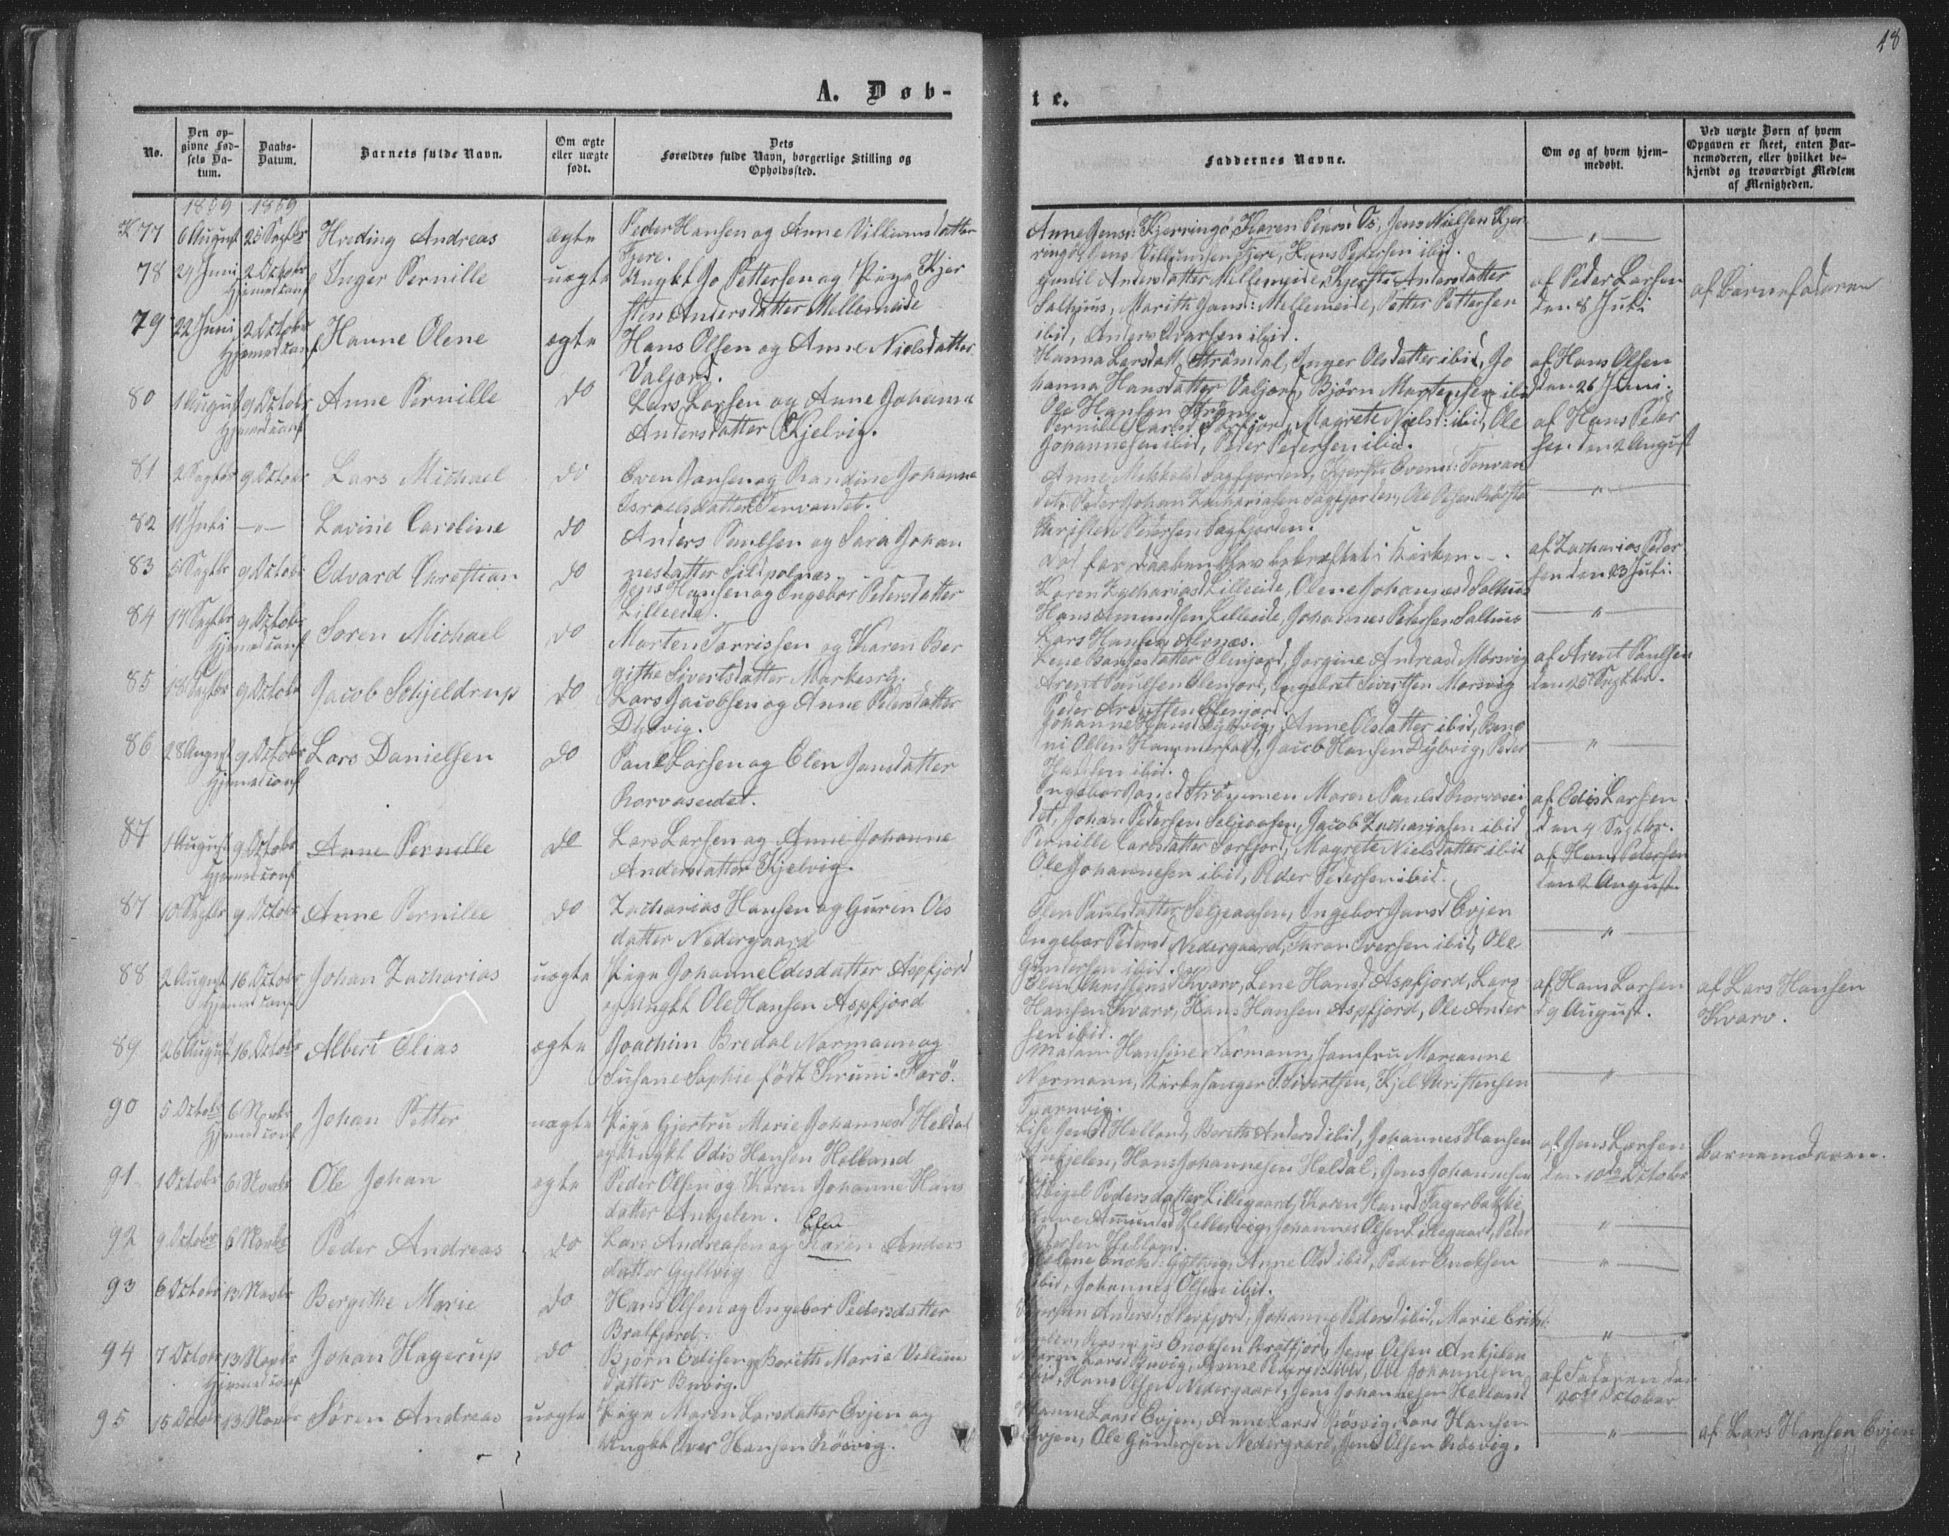 48
A. Døb-
te.
No.
Den op-
givne Fød-
sels Da-
tum.
Daabs-
Datum.
Barnets fulde Navn.
Om ægte
eller uægte
født.
Dets
Forældres fulde Navn, borgerlige Stilling og
Opholdssted.
Faddernes Navne.
Om og af hvem hjem-
medøbt.
Ved uægte Børn af hvem
Opgaven er skeet, enten Bar-
nemoderen, eller hvilket be-
kjendt og troværdigt Medlem
af Menigheden.
1859 1859
77 6 August 25 Septbr Hreding Andreas ægte Peder Hansen og Anne Villumsdatter
Fjere.
Anne Jensd: Kjerringø, Karen Peders: Os, Jens Nielsen Kjer
ringø, Jens Villumsen Fjere, Hans Pedersen ibid.
78 24 Juni 2 Octobr Inger Pernille uægte Ungkl Jo Pettersen og Pige Kjer
Hjemed conf
sten Andersdatter Mellemeide
Gunil Andersdatter Mellemeide, Kjersti Andersdatter
Salthuus, Marith Jonsd: Mellemeide, Petter Pettersen
ibid, Anders Ivarsen ibid.
af Peder Larsen
den 8 Juli
af Barnefaderen
79 22 Juni 2 Octobr Hanne Olene ægte Hans Olsen og Anne Nielsdatter
Hjemed conf
Valjord.
Hanna Larsdatt. Strømdal, Inger Olsdatter ibid, Jo
hanna Hansdatter Valjord, Bjørn Mortensen ibid
Ole Hansen Strøm
af Hans Olsen
den 26 Juni.
80 1 August 9 Octobr Anne Pernille do Lars Larsen og Anne Johanna
Hjemed conf
Andersdatter Kjelvig.
Pernille Carlsd Sørfjord, Magrete Nielsd: ibid, Ole
Johannesen ibid, Peder Pedersen ibid.
af Hans Peder
sen den 2 August
81 2 Septbr 9 Octobr Lars Michael do Even Jonsen og Randine Johanna
Israelsdatter Tennvandet.
Anne Mikkelsd Sagfjorden, Kjersti Evens: Tenvan
det, Peder Johan Zachariasen Sagfjorden, Ole Olsen
Christen Petersen Sagfjorden.
82 11 Juli — " — Lavine Caroline do Anders Paulsen og Sara Johan
nesdatter Sildpolnæs.
Død før Daaben blev bekræftet i Kirken.
af Zacharias Peder
sen den 23 Juli.
83 5 Septbr 9 Octobr Edvard Christian do Jens Hansen og Ingebor Pedersdatter
Lilleeide.
Karen Zachariasd Lilleeide, Olene Johannesd Salthuus
Hans Amundsen Lilleeide, Johannes Pedersen Salthuus
Lars Hansen Alvnæs.
84 17 Septbr 9 Octobr Søren Michael do Morten Torrissen og Karen Ber
Hjemed conf
githe Sivertsdatter Markesrg.
Lene Bansesdatter Elenjord, Jorgine Andreasd Morsvig
Arent Paulsen Elenjord, Ingebret Sivertsen Morsvig
Peder Arentsen Elenjord.
af Arent Paulsen
den 25 Septbr.
85 18 Septbr 9 Octobr Jacob Schjeldrup do Lars Jacobsen og Anne Pedersdatter
Dybvig.
Johanne Hansd Dybvig, Anne Olsdatter ibid,
Olsen Hammerfald, Jacob Hansen Dybvig, Peder
Hansen ibid.
86 28 August 9 Octobr Lars Danielsen do Paul Larsen og Elen Jonsdatter
Hjemed conf
Korvaseidet.
Ingebor Jonsd Strømmen, Maren Paulsd Korvasei
det, Johan Pedersen Seljeaasen, Jacob Zachariasen ibid
af Odis Larsen
den 4 Septbr.
87 1 August 9 Octobr Anne Pernille do Lars Larsen og Anne Johanne
Hjemed conf
Andersdatter Kjelvig.
Pernille Carlsdatter Sørfjord, Magrete Nielsdatter ibid
Ole Johannesen ibid, Peder Pedersen ibid.
af Hans Pedersen
den 2 August
87 10 Septbr 9 Octobr Anne Pernille do Zacharias Hansen og Guren Ols
datter Nedergaard
Elen Paulsdatter Seljeaasen, Ingebor Jonsd Evjen
Ingebor Pedersd Nedergaard, Thron Iversen ibid, Ole
Gundersen ibid.
88 2 August 16 Octobr Johan Zacharias uægte Pige Johanne Odisdatter Aspfjord
Hjemed conf
og Ungkl Ole Hansen Aspfjord
Kvarv, Lene Hansd Aspfjord, Lars
Hansen Kvarv, Hans Hansen Aspfjord, Ole Ander
sen ibid.
af Hans Larsen
d 9 August.
af Lars Hansen
Kvarv.
89 26 August 16 Octobr Albert Elias ægte Joachim Bredal Normann og
Susane Sophie født Kruni. Farö.
Madam Hansine Normann, Jomfru Marianne
Normann, Kirkesanger Sivertsen, Kjel Christensen
Tjærnvig.
90 5 Octobr 6 Novbr Johan Petter uægte Pige Gjertru Marie Johannesd Heldal
Hjemed conf
og Ungkl Odis Hansen Helland
Lise Jensd Helland, Bereth Andersd ibid, Johannes Hansen
Ankjelen, Hans Johannesen Heldal, Jens Johannesen
ibid
af Jens Larsen
den 10de Octobr
Barnemoderen.
91 1 Octobr 6 Novbr Ole Johan ægte Peder Olsen og Karen Johanne Hans
datter Ankjelen.
Abigel Pedersdatter Lillegaard, Karen Hansd Fagerbakke
Anne Amundsd Hellervig, Johannes Olsen Lillegaard, Peder
92 9 Octobr 6 Novbr Peder Andreas do Lars Andreasen og Karen Anders
Elen
datter Gyltvig
Helene Enoksd: Gyltvig, Anne Olsd ibid, Peder Enoksen
ibid, Johannes Olsen ibid.
93 6 Octobr 13 Novbr Bergithe Marie do Hans Olsen og Ingebor Pedersdatter
Bratfjord.
Andersd: Nevfjord, Johanne Pedersd ibid, Marie Eriks
Rasmus Enoksen Bratfjord, Jens Olsen Ankjelen
94 7 Octobr 13 Novbr Johan Hagerup do Bjørn Edisen og Bereth Marie Villum
Hjemed conf
datter Buvig.
Maren Larsd Buvig, Anne Pedersd ibid, Ole Johannesen
ibid, Hans Olsen Nedergaard, Jens Johannesen Helland
af Faderen den
October
95 15 Octobr 13 Novbr Søren Andreas uægte Pige Maren Larsdatter Evjen og
Ungkl Iver Hansen Røsvig.
Hanne Larsd Evjen, Anne Larsd Røsvig, Lars Hansen
Evjen, Ole Gundersen Nedergaard, Jens Olsen Røsvig.
af Lars Hansen Evjen